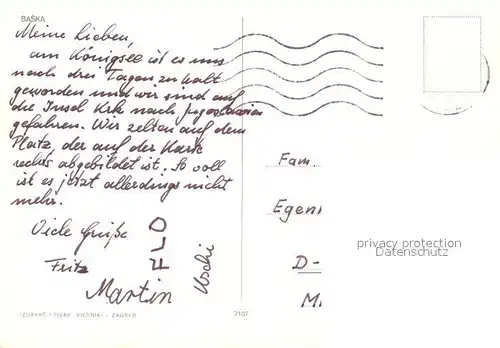 BAŠKA
Meine Lieben,
am Königsee ist es uns
nach drei Tagen zu kalt
geworden und wir sind auf
die Insel Krk nach Jugoslawien
gefahren. Wir zelten auf dem
Platz, der auf der Karte
rechts abgebildet ist. So voll
ist es jetzt allerdings nicht
mehr.
Viele Grüße
Fritz
Martin
FLO
Uschi
Fam.
Egen
D-
M
privacy protection
Datenschutz
IZDAVAČ: TISAK „VJESNIK" - ZAGREB
2107